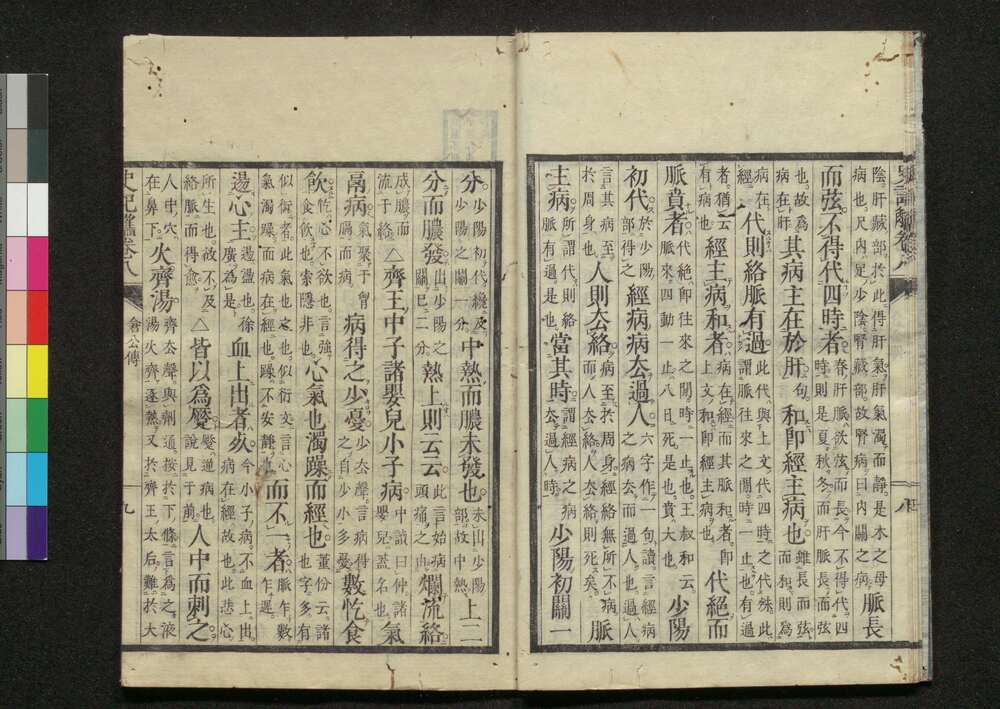 陰肝臟部於此得肝氣肝氣濁而靜是木之母
病也尺內足少陰腎藏部故腎病曰內關之病
脈長
而弦不得代四時者
春肝脈欲弦而長今不得代四
時則是夏秋冬而肝脈長而弦
也故爲
病在肝
其病主在於肝句和卽經主病也
雖長而弦
而和則爲
病在
經
代則絡脈有過
此代與上文代四時之代殊此
謂脈往來之間時一止也有過
者猶云
有病也
經主病和者
病在經而其脈和者卽
上文和卽經主病也
代絕而
脈賁者
代絕卽往來之間時一止也王叔和云
脈來四動一止八日死是也賁大也
少陽
初代
於少陽
部得之
經病病去過人
六字作一句讀言經病
之病去而過人也過人
言其病至
於周身也
人則去絡
病至於周身經絡無所不病
而人去絡人去絡則死矣
脈
主病
所謂代則絡
脈有過是也
當其時
謂經病之病
去過人時
少陽初關一
分
少陽初代纔及
少陽之關一分
中熱而膿未發也
未出少陽
部故中熱
上二
分而膿發
出少陽之
關已二分
熱上則云云
此言始病
頭痛之由
爛流絡
成膿而
流于絡
△齊王中子諸嬰兒小子病
中讀曰仲諸
嬰兒蓋名也
氣
鬲病
氣聚于胷
膈而病
病得之少憂
少去聲言病得
之自少小多憂
數忔食
飮
忔心不欲也言強
食飮也索隱非也
心氣也濁躁而經也
董份云諸
也字多有
似衍者此氣也定也似衍文言心
氣濁躁而病在經也躁不安靜
而不一者
脈乍數
乍遲
盪心主
盪盪也徐
廣爲是
血上出者死
今小子病不血上出
病在經故也此悲心
所生也故不及
絡脈而得愈
△皆以爲蹷
蹷逆病也
說見于萬
人中而刺之
人中穴
在鼻下
火齊湯
齊去聲與劑通按於下條言爲之液
湯火齊逐熱又於齊王太后難於大
倉公傳
九